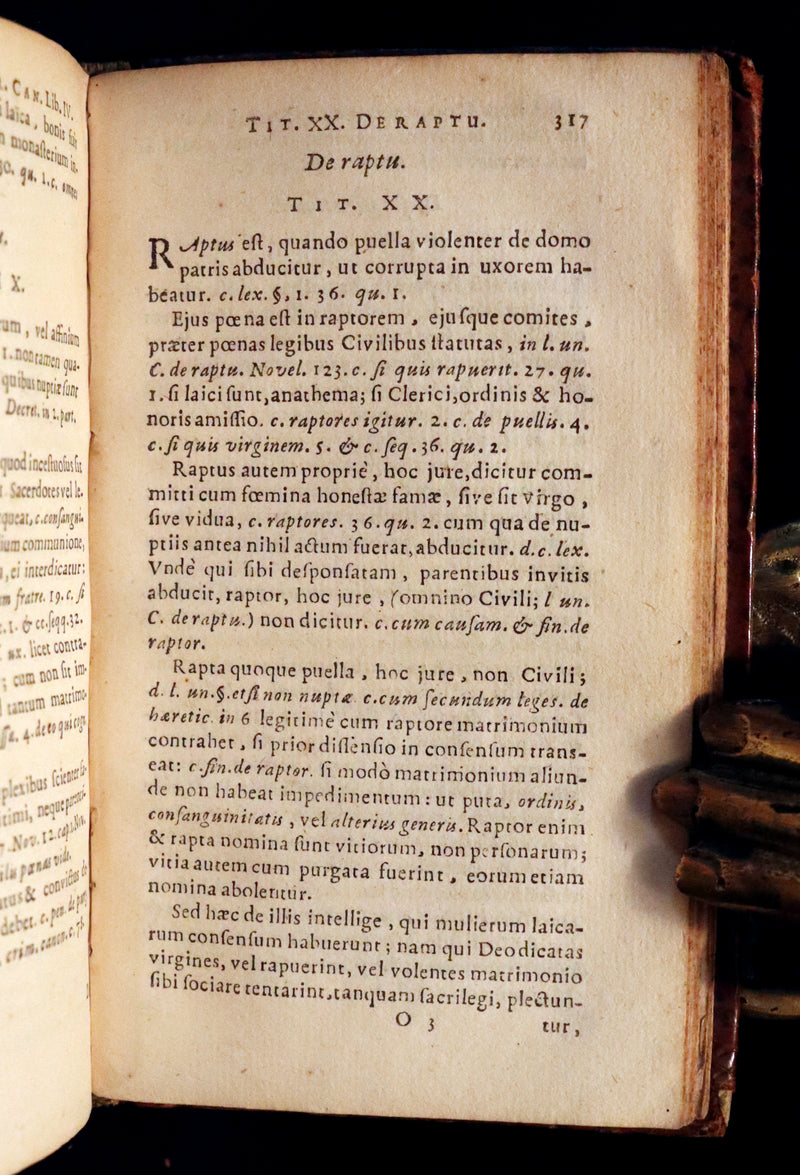 . CAN. Lib. IV.
laica, bonis
monasterium in
30. q4. 1. c.
X.
vel affinium
1. non tamen qua-
quibus nuptiæ sunt
Decret. in 2. part.
quod incestuosus sit
Sacerdotes vel
c. consangui-
communione,
, ei interdicatur:
fratre. 19. c. si
1. & cc. seqq. 32.
licet contra-
; cum non sit im-
tantum matrimo-
Nov. 12. cap.
TIT. XX. DE RAPTU. 317
De raptu.
TIT. XX.
RAptus est, quando puella violenter de domo
patris abducitur, ut corrupta in uxorem ha-
béatur. c. lex. §, 1. 36. qu. 1.
Ejus pœna est in raptorem, ejusque comites,
præter pœnas legibus Civilibus statutas, in l. un.
C. de raptu. Novel. 123. c. si quis rapuerit. 27. qu.
1. si laici sunt, anathema; si Clerici, ordinis & ho-
noris amissio. c. raptores igitur. 2. c. de puellis. 4.
c. si quis virginem. 5. & c. seq. 36. qu. 2.
Raptus autem propriè, hoc jure, dicitur com-
mitti cum fœmina honestæ famæ, sive sit virgo,
sive vidua, c. raptores. 36. qu. 2. cum qua de nu-
ptiis antea nihil actum fuerat, abducitur. d. c. lex.
Vndè qui sibi desponsatam, parentibus invitis
abducit, raptor, hoc jure, (omnino Civili; l un.
C. de raptu.) non dicitur. c. cum causam. & fin. de
raptor.
Rapta quoque puella, hoc jure, non Civili;
d. l. un. §. et si non nuptæ. c. cum secundum leges. de
hæretic. in 6 legitimè cum raptore matrimonium
contrahet, si prior dissènsio in consensum trans-
eat: c. fin. de raptor. si modò matrimonium aliun-
de non habeat impedimentum: ut puta, ordinis,
consanguinitatis, vel alterius generis. Raptor enim
& rapta nomina sunt vitiorum, non personarum;
vitia autem cum purgata fuerint, eorum etiam
nomina abolentur.
Sed hæc de illis intellige, qui mulierum laica-
rum consensum habuerunt; nam qui Deo dicatas
virgines, vel rapuerint, vel volentes matrimonio
sibi sociare tentarint, tanquam sacrilegi, plectun-
O 3 tur,